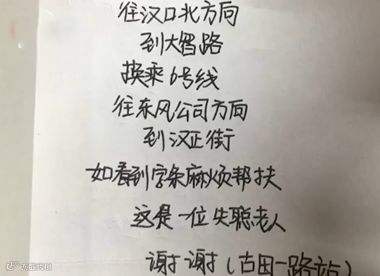 往汉口北方向
到大智路
换乘6号线
往东风公司方向
到汉正街
如看到字条麻烦帮扶
这是一位失聪老人
谢谢(古田一路站)